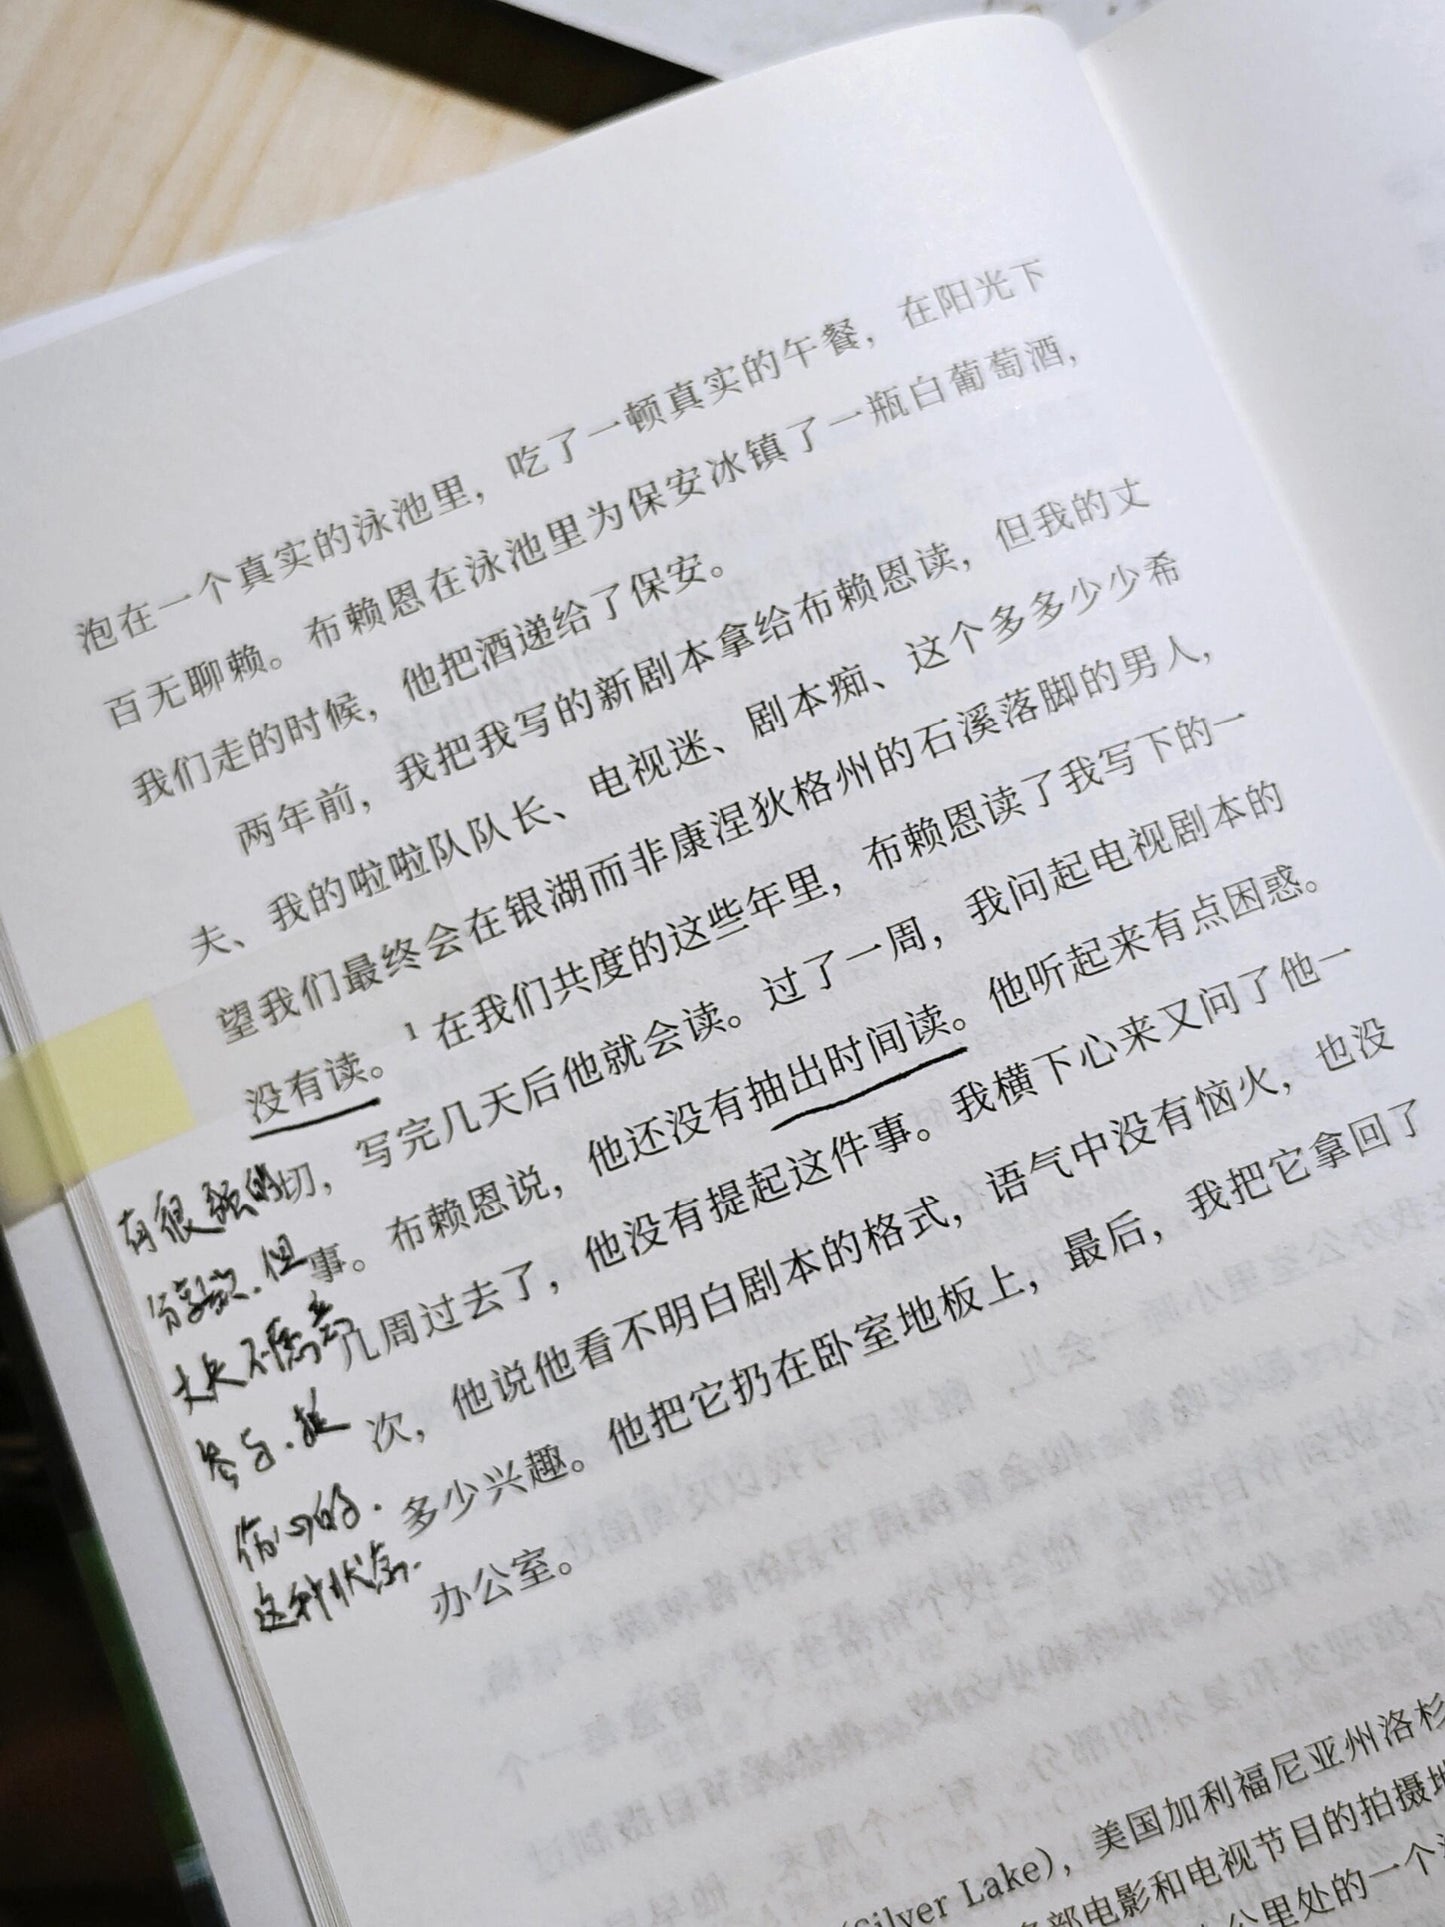 泡在一个真实的泳池里，吃了一顿真实的午餐，在阳光下
百无聊赖。布赖恩在泳池里为保安冰镇了一瓶白葡萄酒，
我们走的时候，他把酒递给了保安。
两年前，我把我写的新剧本拿给布赖恩读，但我的丈
夫、我的啦啦队队长、电视迷、剧本痴、这个多多少少希
望我们最终会在银湖而非康涅狄格州的石溪落脚的男人，
没有读。¹在我们共度的这些年里，布赖恩读了我写下的一
切，写完几天后他就会读。过了一周，我问起电视剧本的
事。布赖恩说，他还没有抽出时间读。他听起来有点困惑。
几周过去了，他没有提起这件事。我横下心来又问了他一
次，他说他看不明白剧本的格式，语气中没有恼火，也没
多少兴趣。他把它扔在卧室地板上，最后，我把它拿回了
办公室。
有很强的
分享欲.但
丈夫不愿意
参与.挺
伤心的.
这种状态.
(Silver Lake)，美国加利福尼亚州洛杉
多部电影和电视节目的拍摄地
公里处的一个